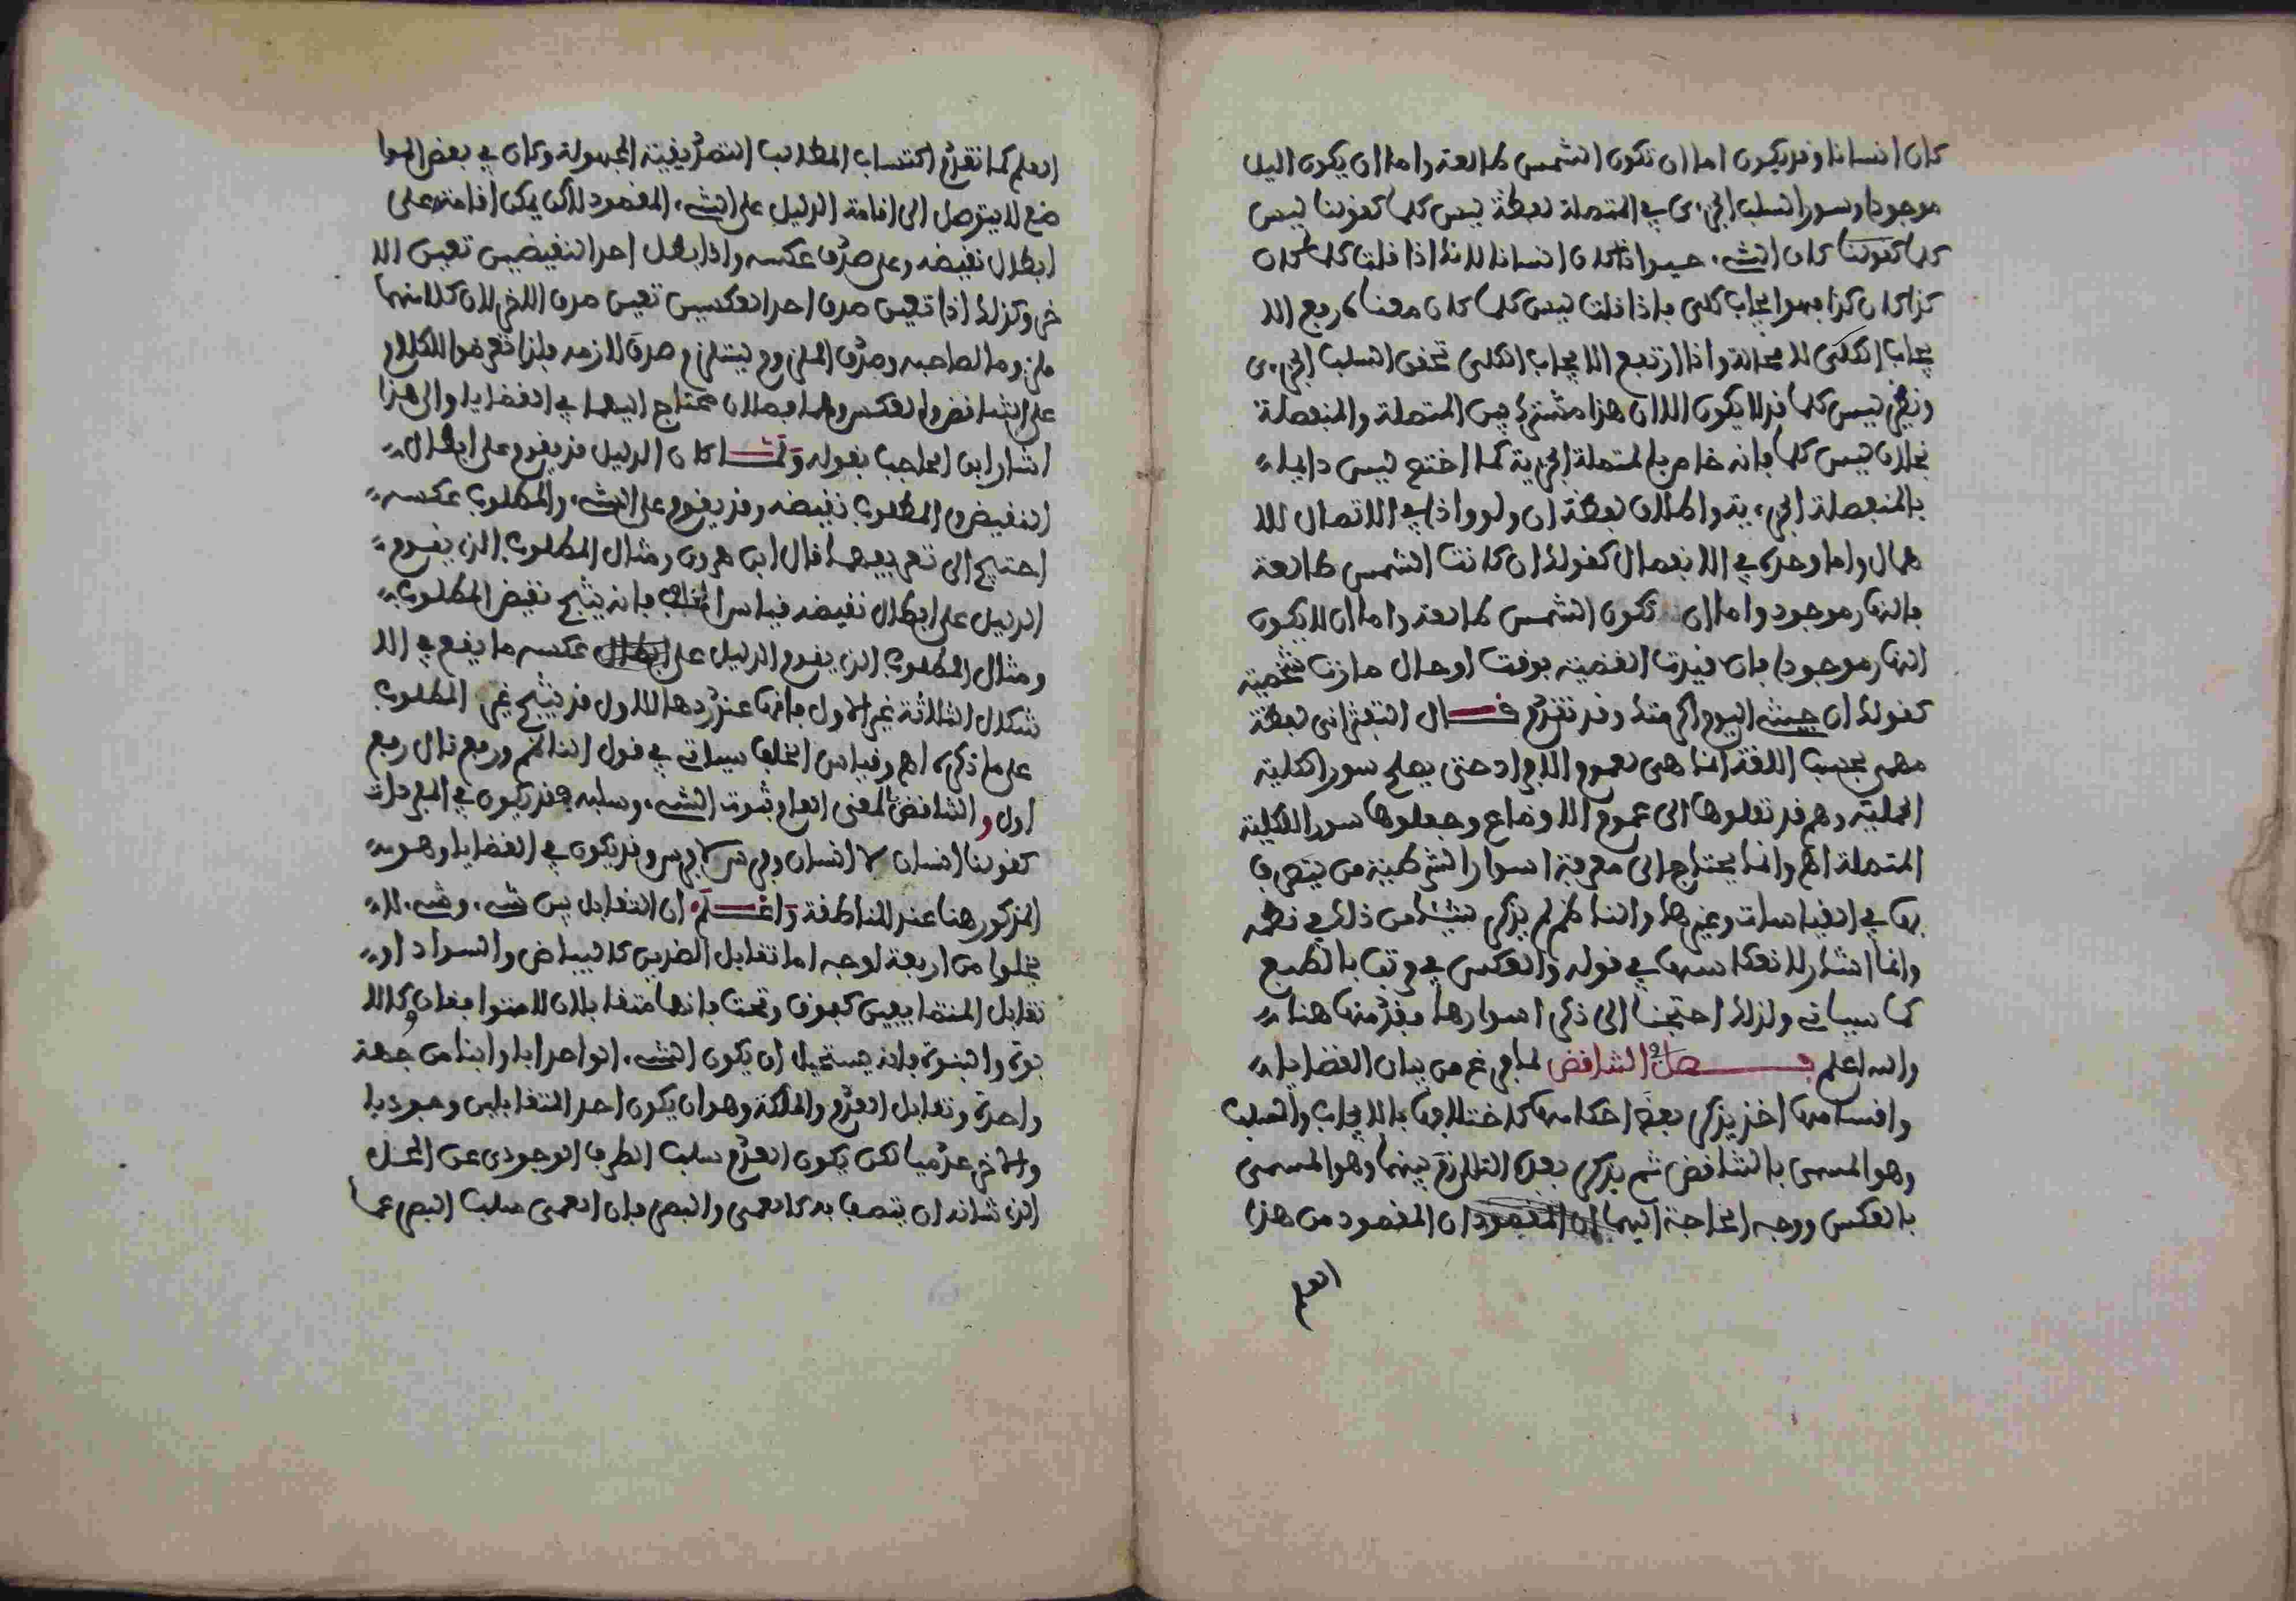 كان انسانا وقد يكون اما ان تكون الشمس طالعة واما ان يكون اليل
موجودا وسور السلب الجزءى في المتصلة لفظة ليس كلما كقولنا ليس
كلما كقولنا كان الشىء حيوانا كان انسانا لانك اذا قلت كلما كان
كذا كان كذا فهو ايجاب كلى فاذا قلت ليس كلما كان معناه رفع الا
يجاب الكلى لا محالة واذا ارتفع الايجاب الكلى تحقق السلب الجزءى
ونظير ليس كلما قد لا يكون الا ان هذا مشترك بين المتصلة والمنفصلة
بخلاف ليس كلما فانه خاص بالمتصلة الجزءية كما اختص ليس دايما
بالمنفصلة الجزءية واطلاق لفظة ان ولو واذا في الاتصال للا
همال واما وحده في الانفصال كقولك ان كانت الشمس طالعة
فالنهار موجود واما ان تكون الشمس طالعة واما ان لا يكون
النهار موجودا فان قيدت القضية بوقت او حال صارت شخصية
كقولك ان جيت اليوم اكرمتك وقد تقدم قال التفتزانى لفظة
مهمى بحسب اللغة انما هى لعموم الافراد حتى يصلح سور الكلية
الحملية وهم قد نقلوها الى عموم الاوضاع وجعلوها سور الكلية
المتصلة اهـ وانما يحتاج الى معرفة اسوار الشرطية من يتصرف
بها في القياسات وغيرها والناظم لم يذكر شيئا من ذلك في نظمه
وانما اشار لانعكاسها في قوله والعكس في مرتب بالطبع
كما سياتى ولذلك احتجنا الى ذكر اسوارها فقدمنها هنا
والله اعلم فصل في التناقض لما فرغ من بيان القضايا
واقسامها اخذ يذكر بعض احكامها كاختلافها بالايجاب والسلب
وهو المسمى بالتناقض ثم يذكر بعده التلازم بينهما وهو المسمى
بالعكس ووجه الحاجة اليهما ان المقصود ان المقصود من هذا
العلم
العلم كما تقدم اكتساب المطالب التصديقية المجهولة وكان في بعض الموا
ضع لا يتوصل الى اقامة الدليل على الشىء المقصود لاكن يمكن اقامته على
ابطال نقيضه وعلى صدق عكسه واذا بطل احد النقيضين تعين الا
خر وكذلك اذا تعين صدق احد العكسين تعين صدق الاخر لان كلا منهما
ملزوما لصاحبه وصدق الملزوم يستلزم صدق لازمه فلذا تعرضوا للكلام
على التناقض والعكس وهما فصلان محتاج اليهما في القضايا والى هذا
اشار ابن الحاجب بقوله ولما كان الدليل قد يقوم على ابطال
النقيض والمطلوب نقيضه وقد يقوم على الشىء والمطلوب عكسه
احتيج الى تعريفهما قال ابن هرون ومثال المطلوب الذى يقوم
الدليل على ابطال نقيضه قياس الخلف فانه ينتج نقيض المطلوب
ومثال المطلوب الذى يقوم الدليل على ابطال عكسه ما يقع في الا
شكال الثلاثة غير الاول فانها عند ردها للاول قد ينتج غير المطلوب
على ما ذكره اهـ وقياس الخلف سياتى في قول الناظم ورفع تال رفع
اول والتناقض بالمعنى العام ثبوت الشىء وسلبه وقد يكون في المفردات
كقولنا انسان لا انسان وفرس لا فرس وقد يكون في القضايا وهو
المذكور هنا عند المناطقة واعلم ان التقابل بين شىء وشىء لا
يخلوا من اربعة اوجه اما تقابل الضدين كالبياض والسواد او
تقابل المتضايفين كفوق وتحت فانهما متقابلان لا متوافقان وكالا
بوة والبنوة فانه يستحيل ان يكون الشىء الواحد ابا وابنا من جهة
واحدة وتقابل العدم والملكة وهو ان يكون احد المتقابلين وجوديا
والاخر عدميا لكن يكون العدم سلب الطرف الوجودى عن المحل
الذى شانه ان يتصف به كالعمى والبصر فان العمى سلب البصر عما